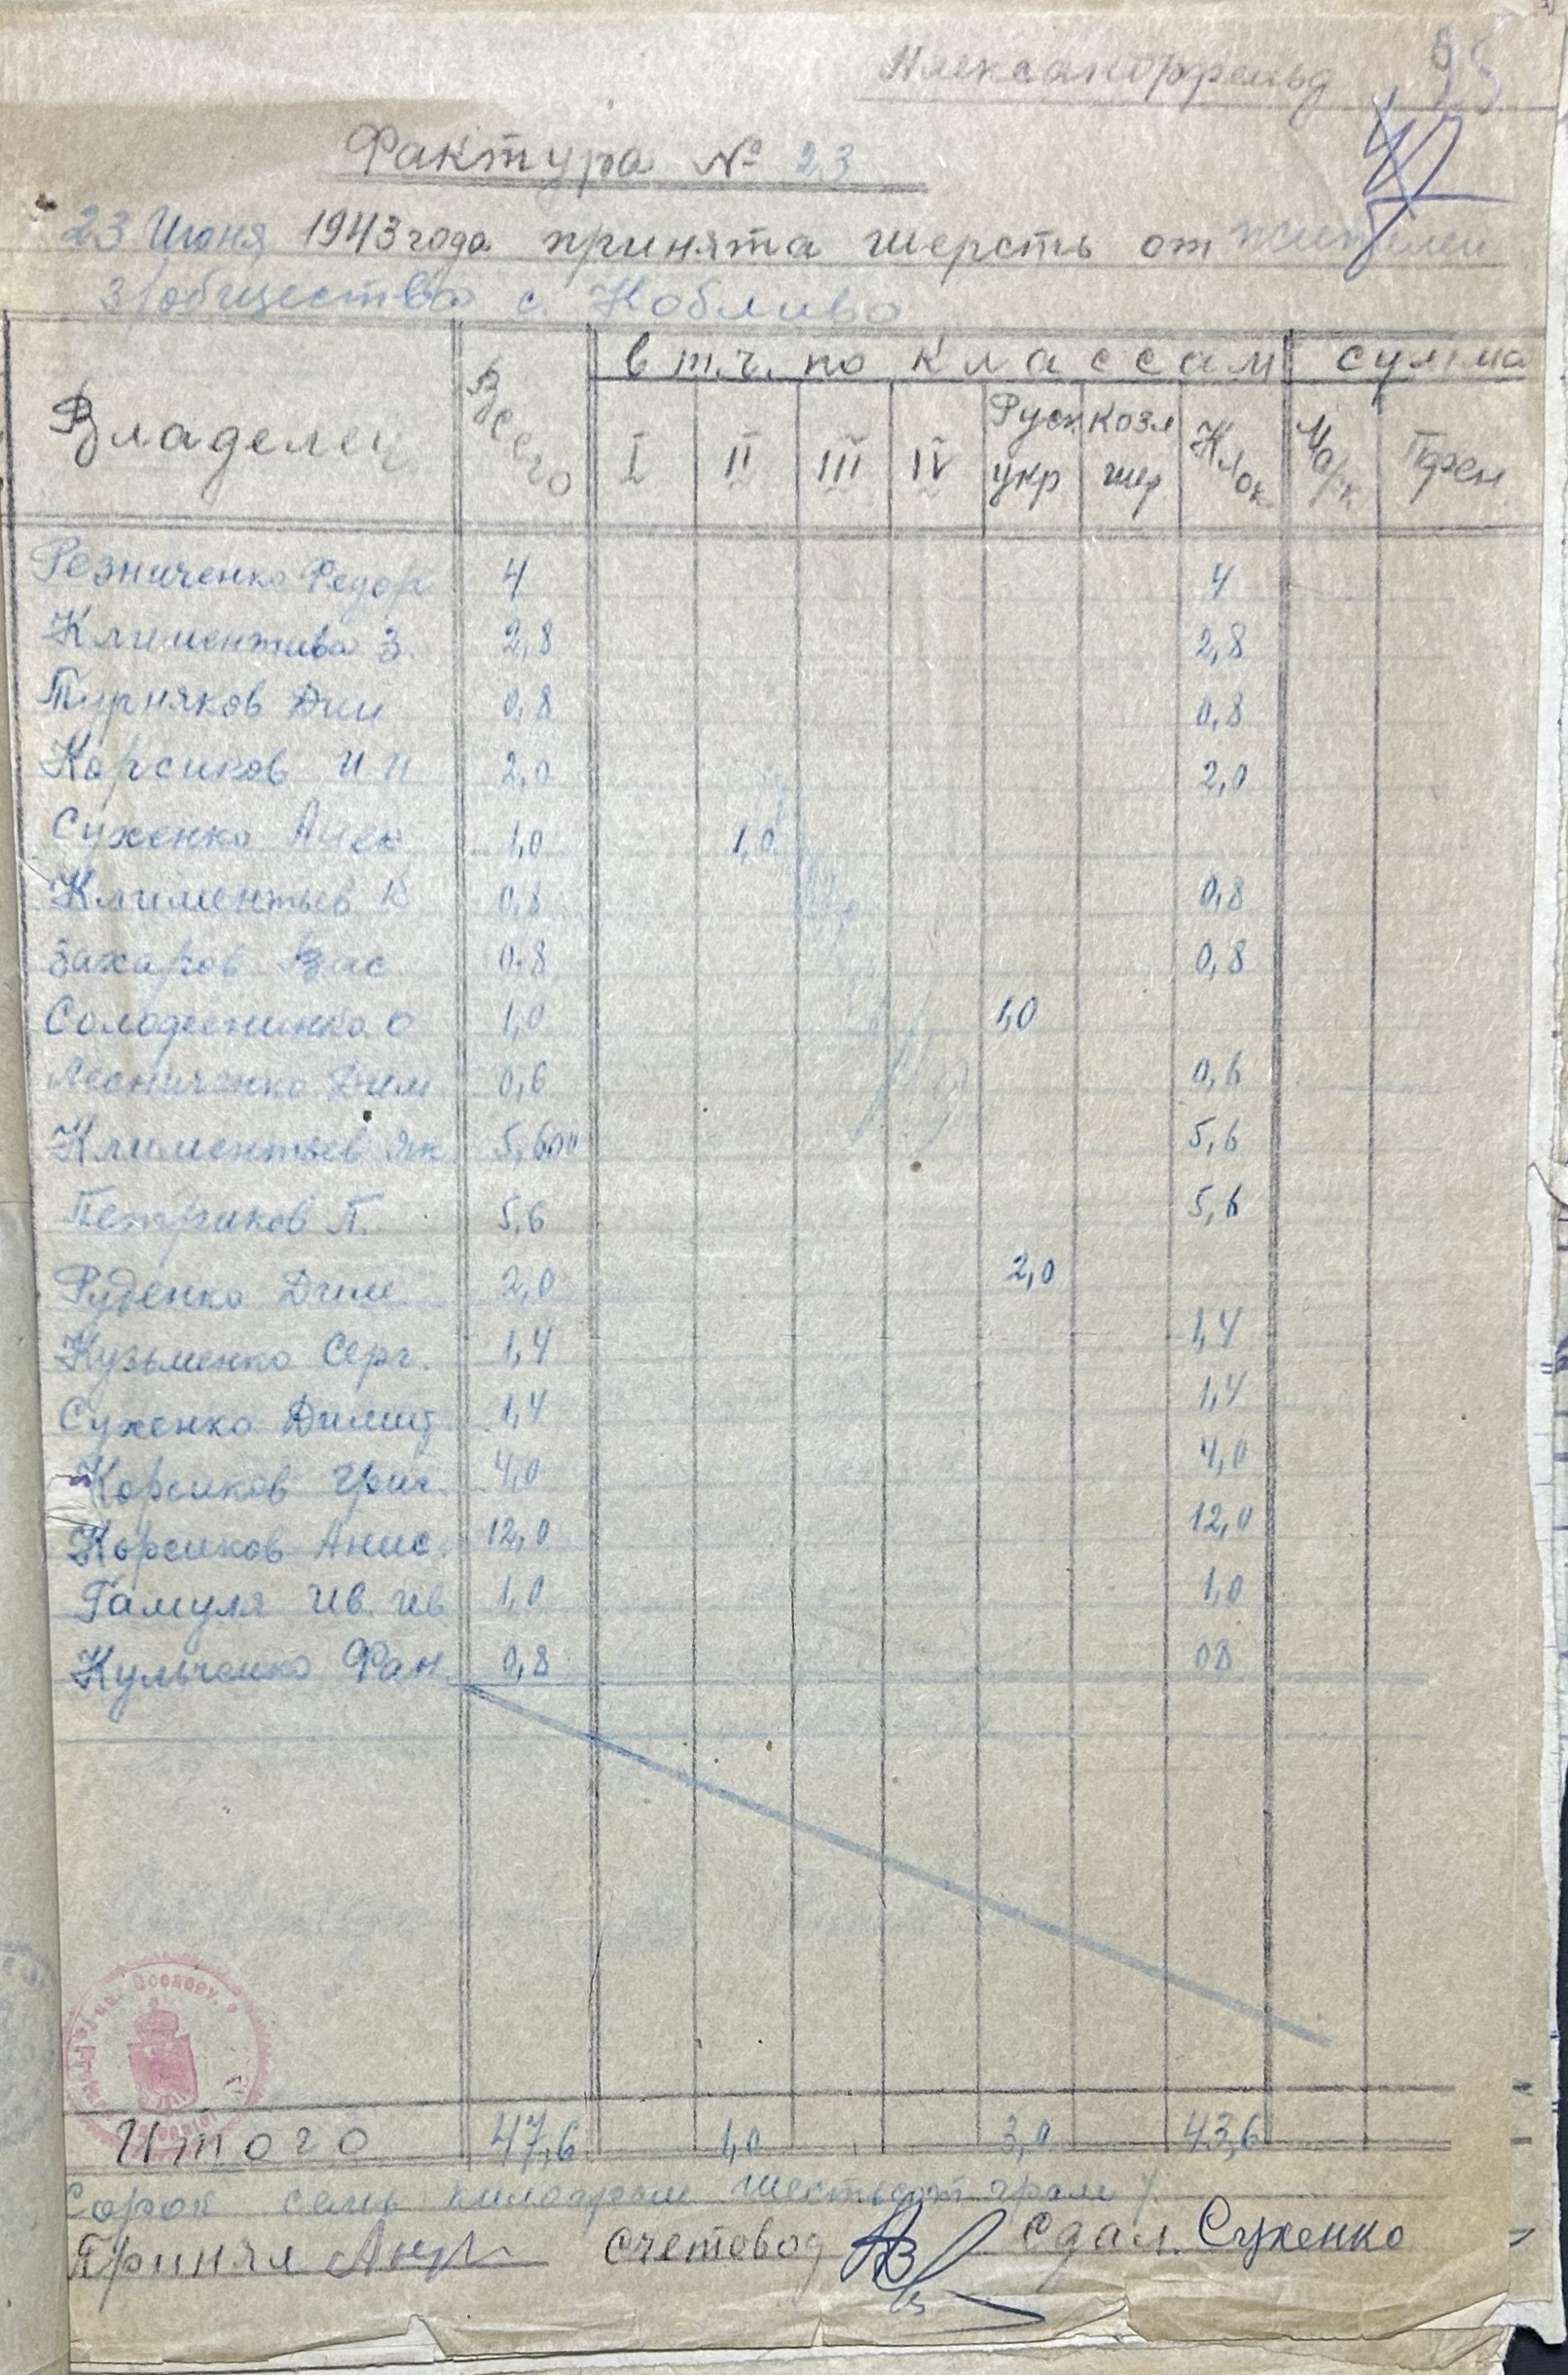 Александрфельд 95
47
Фактура № 23
23 Июня 1943 года принята шерсть от жителей
з/общества с. Кобливо
Владелец Всего в т.ч. по классам сумма
I II III IV Руск укр козл шер Клок Марк Пфен
Резниченко Федор 4 4
Климентива З. 2,8 2,8
Турняков Дми 0,8 0,8
Корсиков И И 2,0 2,0
Сухенко Алек 1,0 1,0
Климентьев К 0,8 0,8
Захаров Вас 0.8 0,8
О 1,0 1,0
Дим 0,6 0,6
Климентьев Як 5,6 5,6
Петриков П. 5,6 5,6
Руденко Дим. 2,0 2,0
Кузьменко Серг. 1,4 1,4
Сухенко Димит 1,4 1,4
Корсиков Григ. 4,0 4,0
Корсиков Анис. 12,0 12,0
Гамуля Ив. Ив 1,0 1,0
Кульченко Фан. 0,8 08
Итого 47,6 1,0 3,0 43,6
Сорок семь килограм шестьсот грам
Принял счетовод Сдал. Сухенко